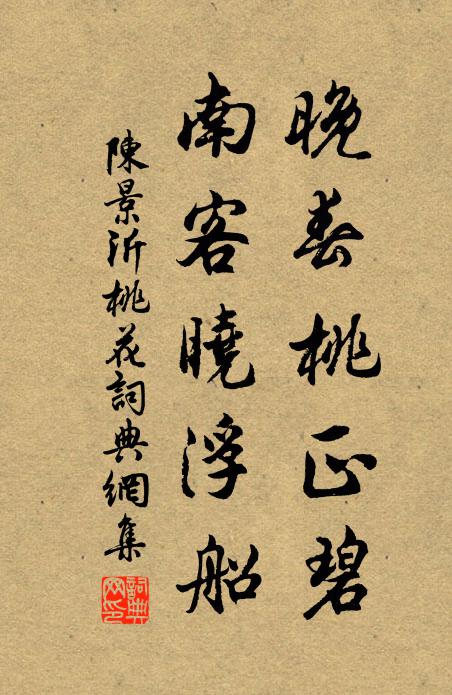 晚春桃正碧
南客曉浮船
陳景沂桃花詞典網集
詞典網印